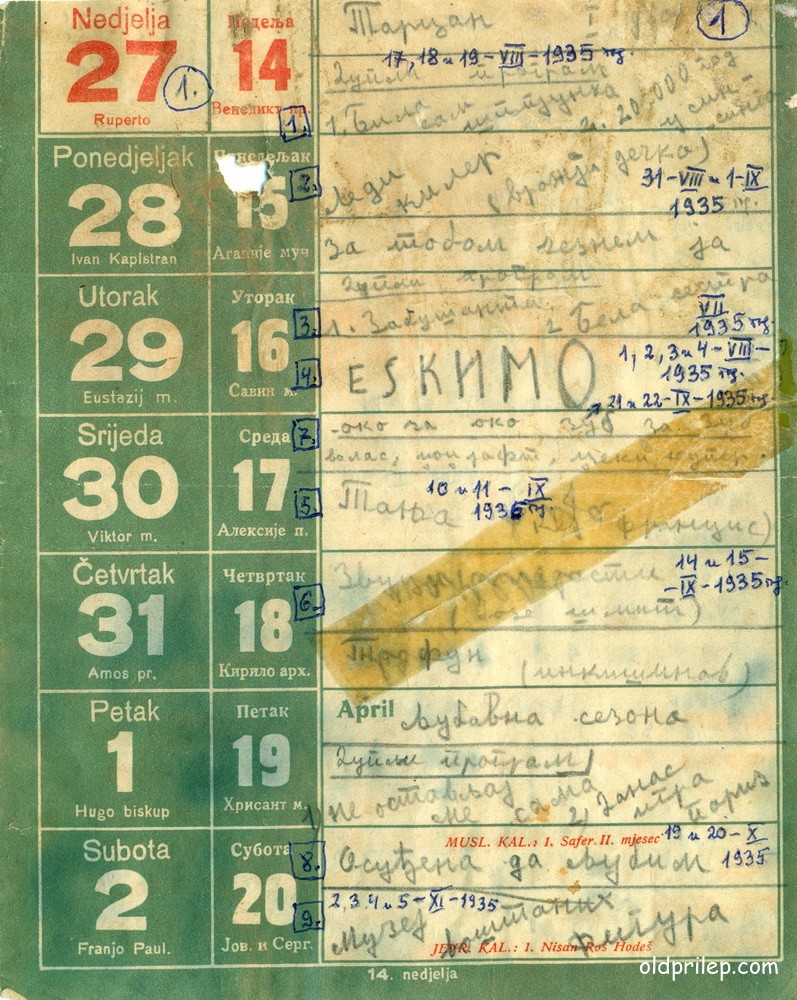 Nedjelja
27
Ruperto
1.
Недеља
14
Венедикт пр.
1.
Тарзан I
1
17, 18 и 19 – VIII – 1935 год.
Дупли програм
1. Била сам шпијунка
2. 20.000 год у синг синга
Ponedjeljak
28
Ivan Kapistran
Понедељак
15
Агапије муч
2.
Леди килер
(вражји дечко)
31 – VIII и 1 – IX
1935 г.
За тобом чезнем ја
Utorak
29
Eustazij m.
Уторак
16
Савин м.
3.
Дупли програм
1. Забушанти
2 Бела сестра
VII
1935 год.
4.
ESKИМО
1, 2, 3 и 4 – VIII –
1935 г.
21 и 22 – IX – 1935 год
Srijeda
30
Viktor m.
Среда
17
Алексије п.
7.
око за око зуб за зуб
5.
Тања
10 и 11 – IX
1935 г.
(кеј францис)
Četvrtak
31
Amos pr.
Четвртак
18
Кирило арх.
6.
14 и 15 –
– IX – 1935 год.
Petak
1
Hugo biskup
Петак
19
Хрисант м.
April
Љубавна сезона
Дупли програм
1) не остављај ме сама
2) Данас игра
Subota
2
Franjo Paul.
Субота
20
Јов. и Серг.
MUSL. KAL.: 1. Safer. II. mjesec
8.
Осуђена да љубим
19 и 20 – X
1935
9.
2, 3, 4 и 5 – XI – 1935
Музеј воштаних фигура
JEVR. KAL.: 1. Nisan Roš Hodeš
14. nedjelja
oldprilep.com